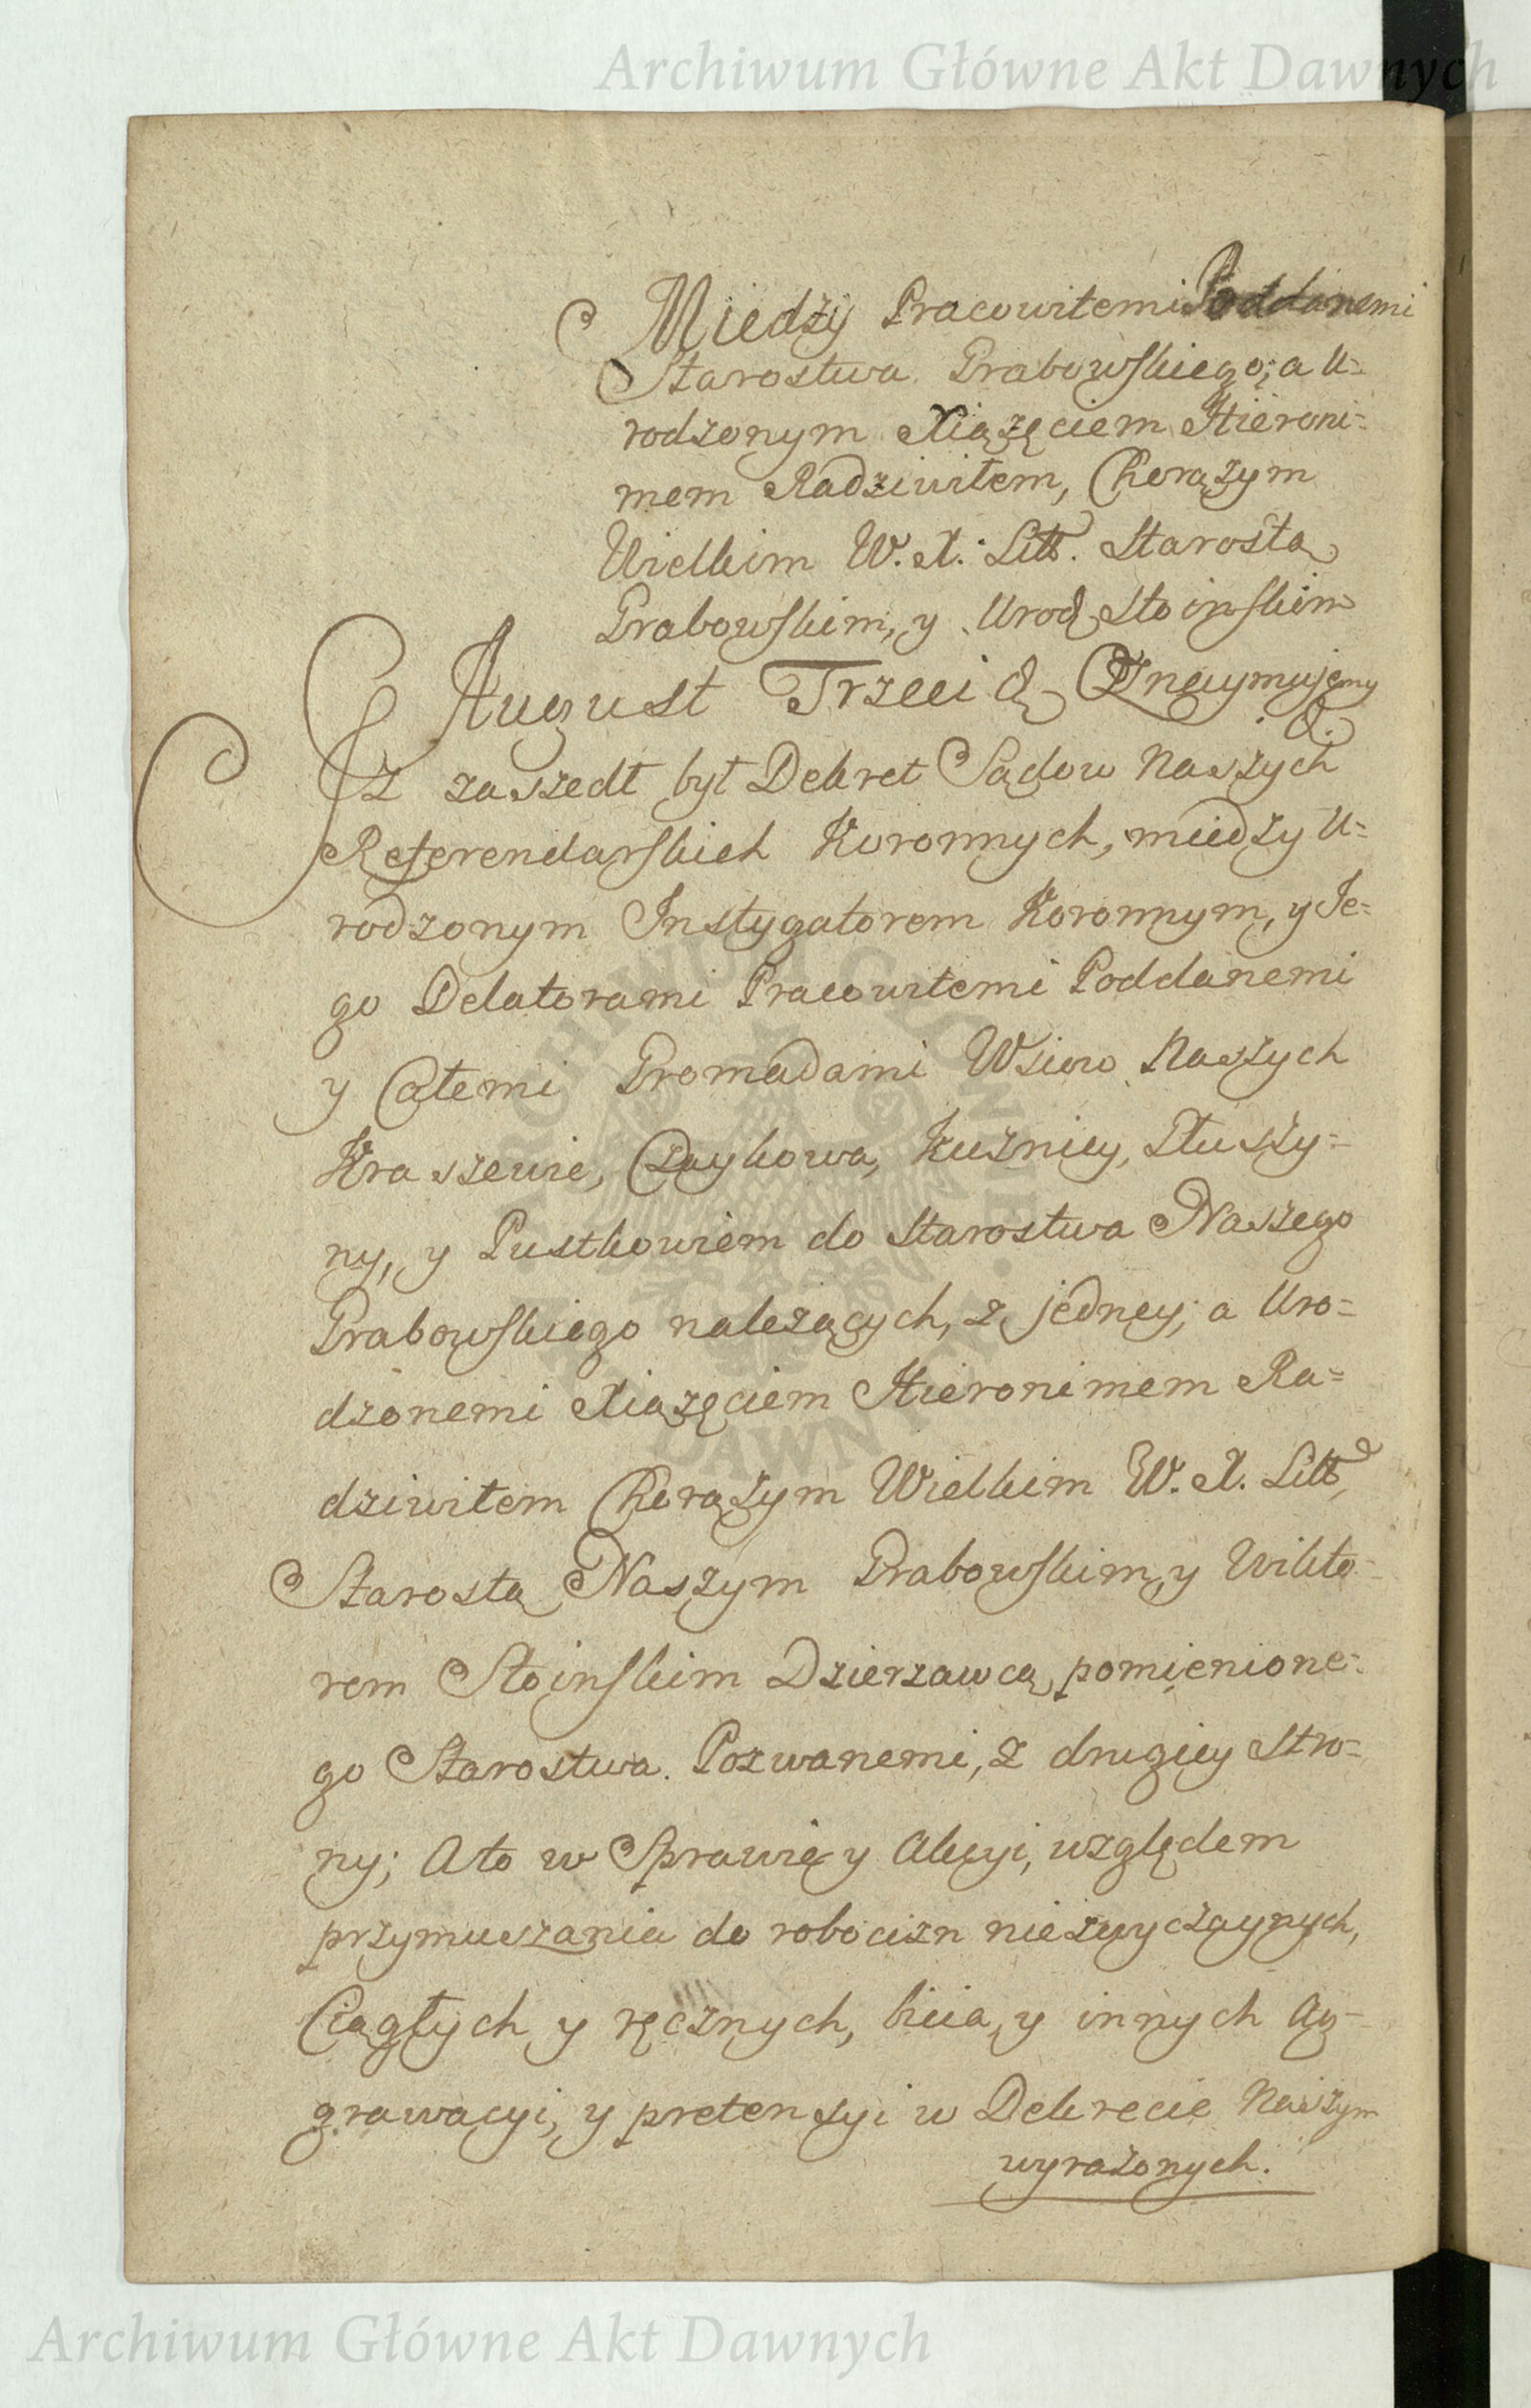 Archiwum Główne Akt Dawnych
Miedzy Pracowitemi Poddanemi
Starostwa Grabowskiego; a U=
rodzonym Xiążęciem Hieroni=
mem Radziwiłem, Chorążym
Wielkim W. X. Litt. Starostą
Grabowskim, y Urod. Stoinskim
August Trzeci &. Oznaymujemy
&.
Iż zaszedł był Dekret Sądow Naszych
Referendarskich Koronnych, miedzy U=
rodzonym Instygatorem Koronnym, y Je=
go Delatorami Pracowitemi Poddanemi
y Całemi Gromadami Wsiow Naszych
Kraszewic, Czaykowa, Kuźnicy, Głuszy=
ny, y Pustkowiem do Starostwa Naszego
Grabowskiego należących, z jedney; a Uro=
dzonemi Xiążęciem Hieronimem Ra=
dziwiłem Chorążym Wielkim W. X. Litt,
Starostą Naszym Grabowskim, y Wikto=
rem Stoinskim Dzierzawcą pomienione=
go Starostwa. Pozwanemi, z drugiey Stro=
ny; A to w Sprawie y Akcyi, względem
przymuszania do robocizn niezwyczaynych,
Ciągłych y ręcznych, bicia, y innych Ag=
grawacyi, y pretensyi w Dekrecie Naszym
wyrażonych.
Archiwum Główne Akt Dawnych